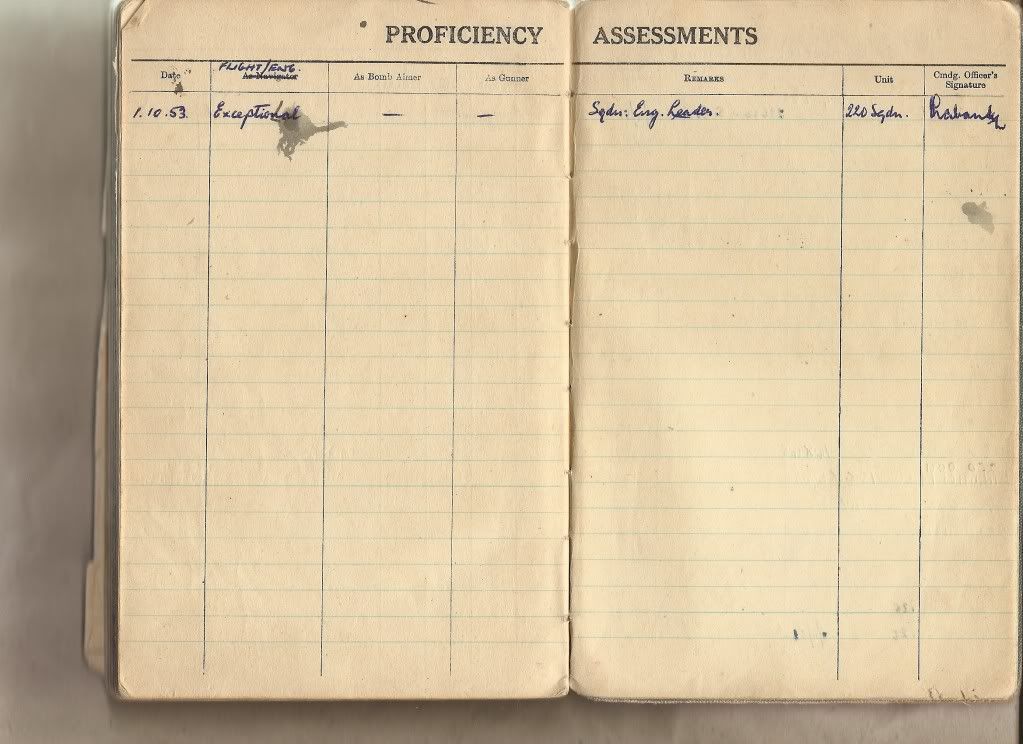 PROFICIENCY ASSESSMENTS
Date FLIGHT/ENG. As Navigator As Bomb Aimer As Gunner Remarks Unit Cmdg. Officer's Signature
1.10.53. Exceptional — — Sqdn: Eng. Leader. 220 Sqdn.